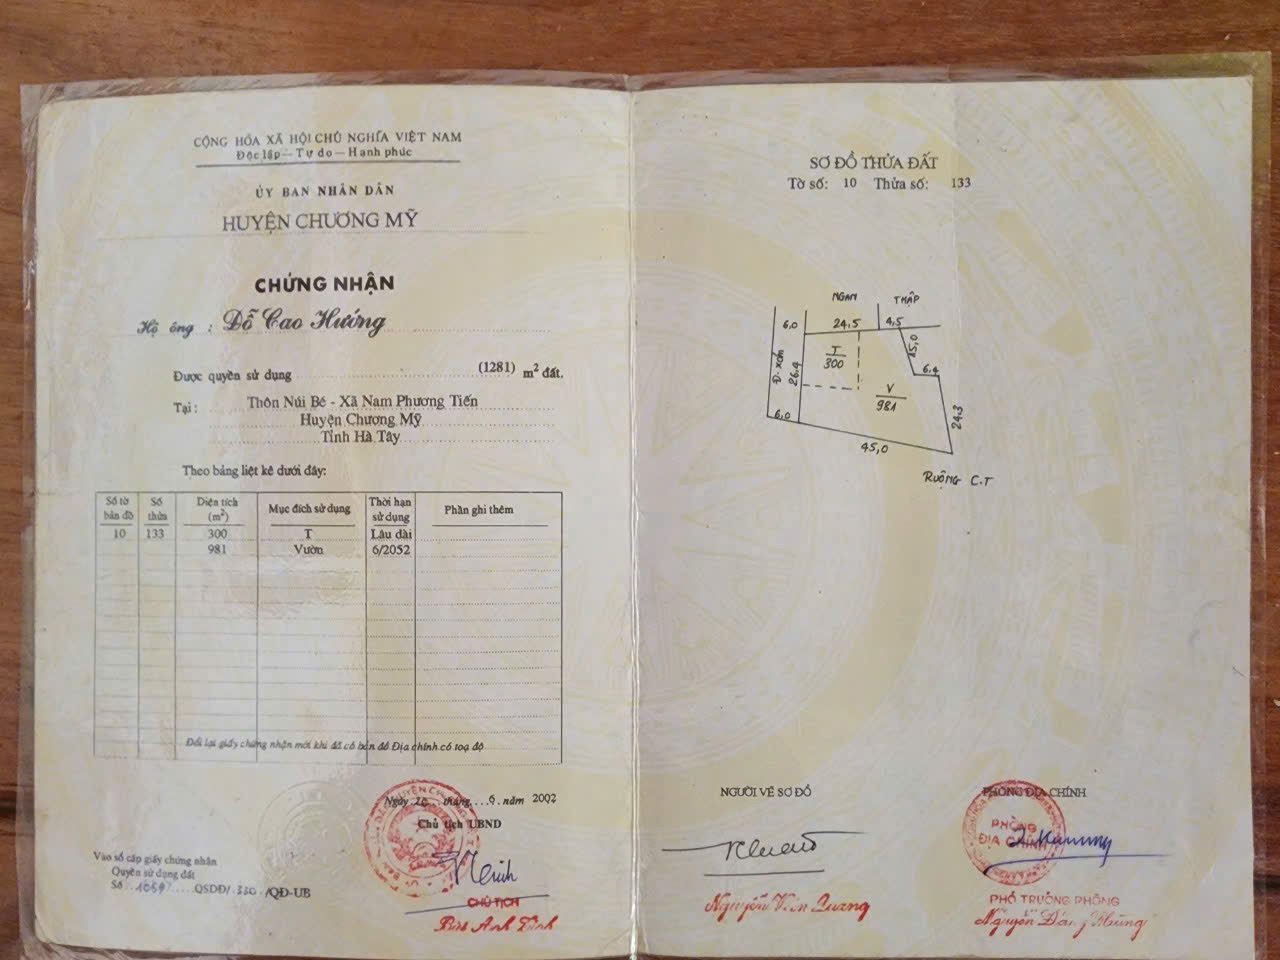 CỘNG HÒA XÃ HỘI CHỦ NGHĨA VIỆT NAM
Độc lập - Tự do - Hạnh phúc
ỦY BAN NHÂN DÂN
HUYỆN CHƯƠNG MỸ
CHỨNG NHẬN
Hộ ông : Đỗ Cao Hướng
Được quyền sử dụng (1281) m² đất.
Tại : Thôn Núi Bé - Xã Nam Phương Tiến
Huyện Chương Mỹ
Tỉnh Hà Tây
Theo bảng liệt kê dưới đây:
Số tờ bản đồ Số thửa Diện tích (m²) Mục đích sử dụng Thời hạn sử dụng Phần ghi thêm
10 133 300 T Lâu dài
981 Vườn 6/2052
Đổi lại giấy chứng nhận mới khi đã có bản đồ Địa chính có toạ độ
Ngày 20 tháng 6 năm 2002
Chủ tịch UBND
CHỦ TỊCH
Vào sổ cấp giấy chứng nhận
Quyền sử dụng đất
Số QSDĐ/ 330 /QĐ-UB
SƠ ĐỒ THỬA ĐẤT
Tờ số: 10 Thửa số: 133
NGAN THẬP
6,0 24,5 4,5
T
300
15,0
6,4
Đ. xóm
26,4
V
981
24,3
6,0
45,0
RUỘNG C.T
NGƯỜI VẼ SƠ ĐỒ
Nguyễn Văn Quang
PHÒNG ĐỊA CHÍNH
PHÒNG
ĐỊA CHÍNH
PHÓ TRƯỞNG PHÒNG
Nguyễn Đăng Hùng